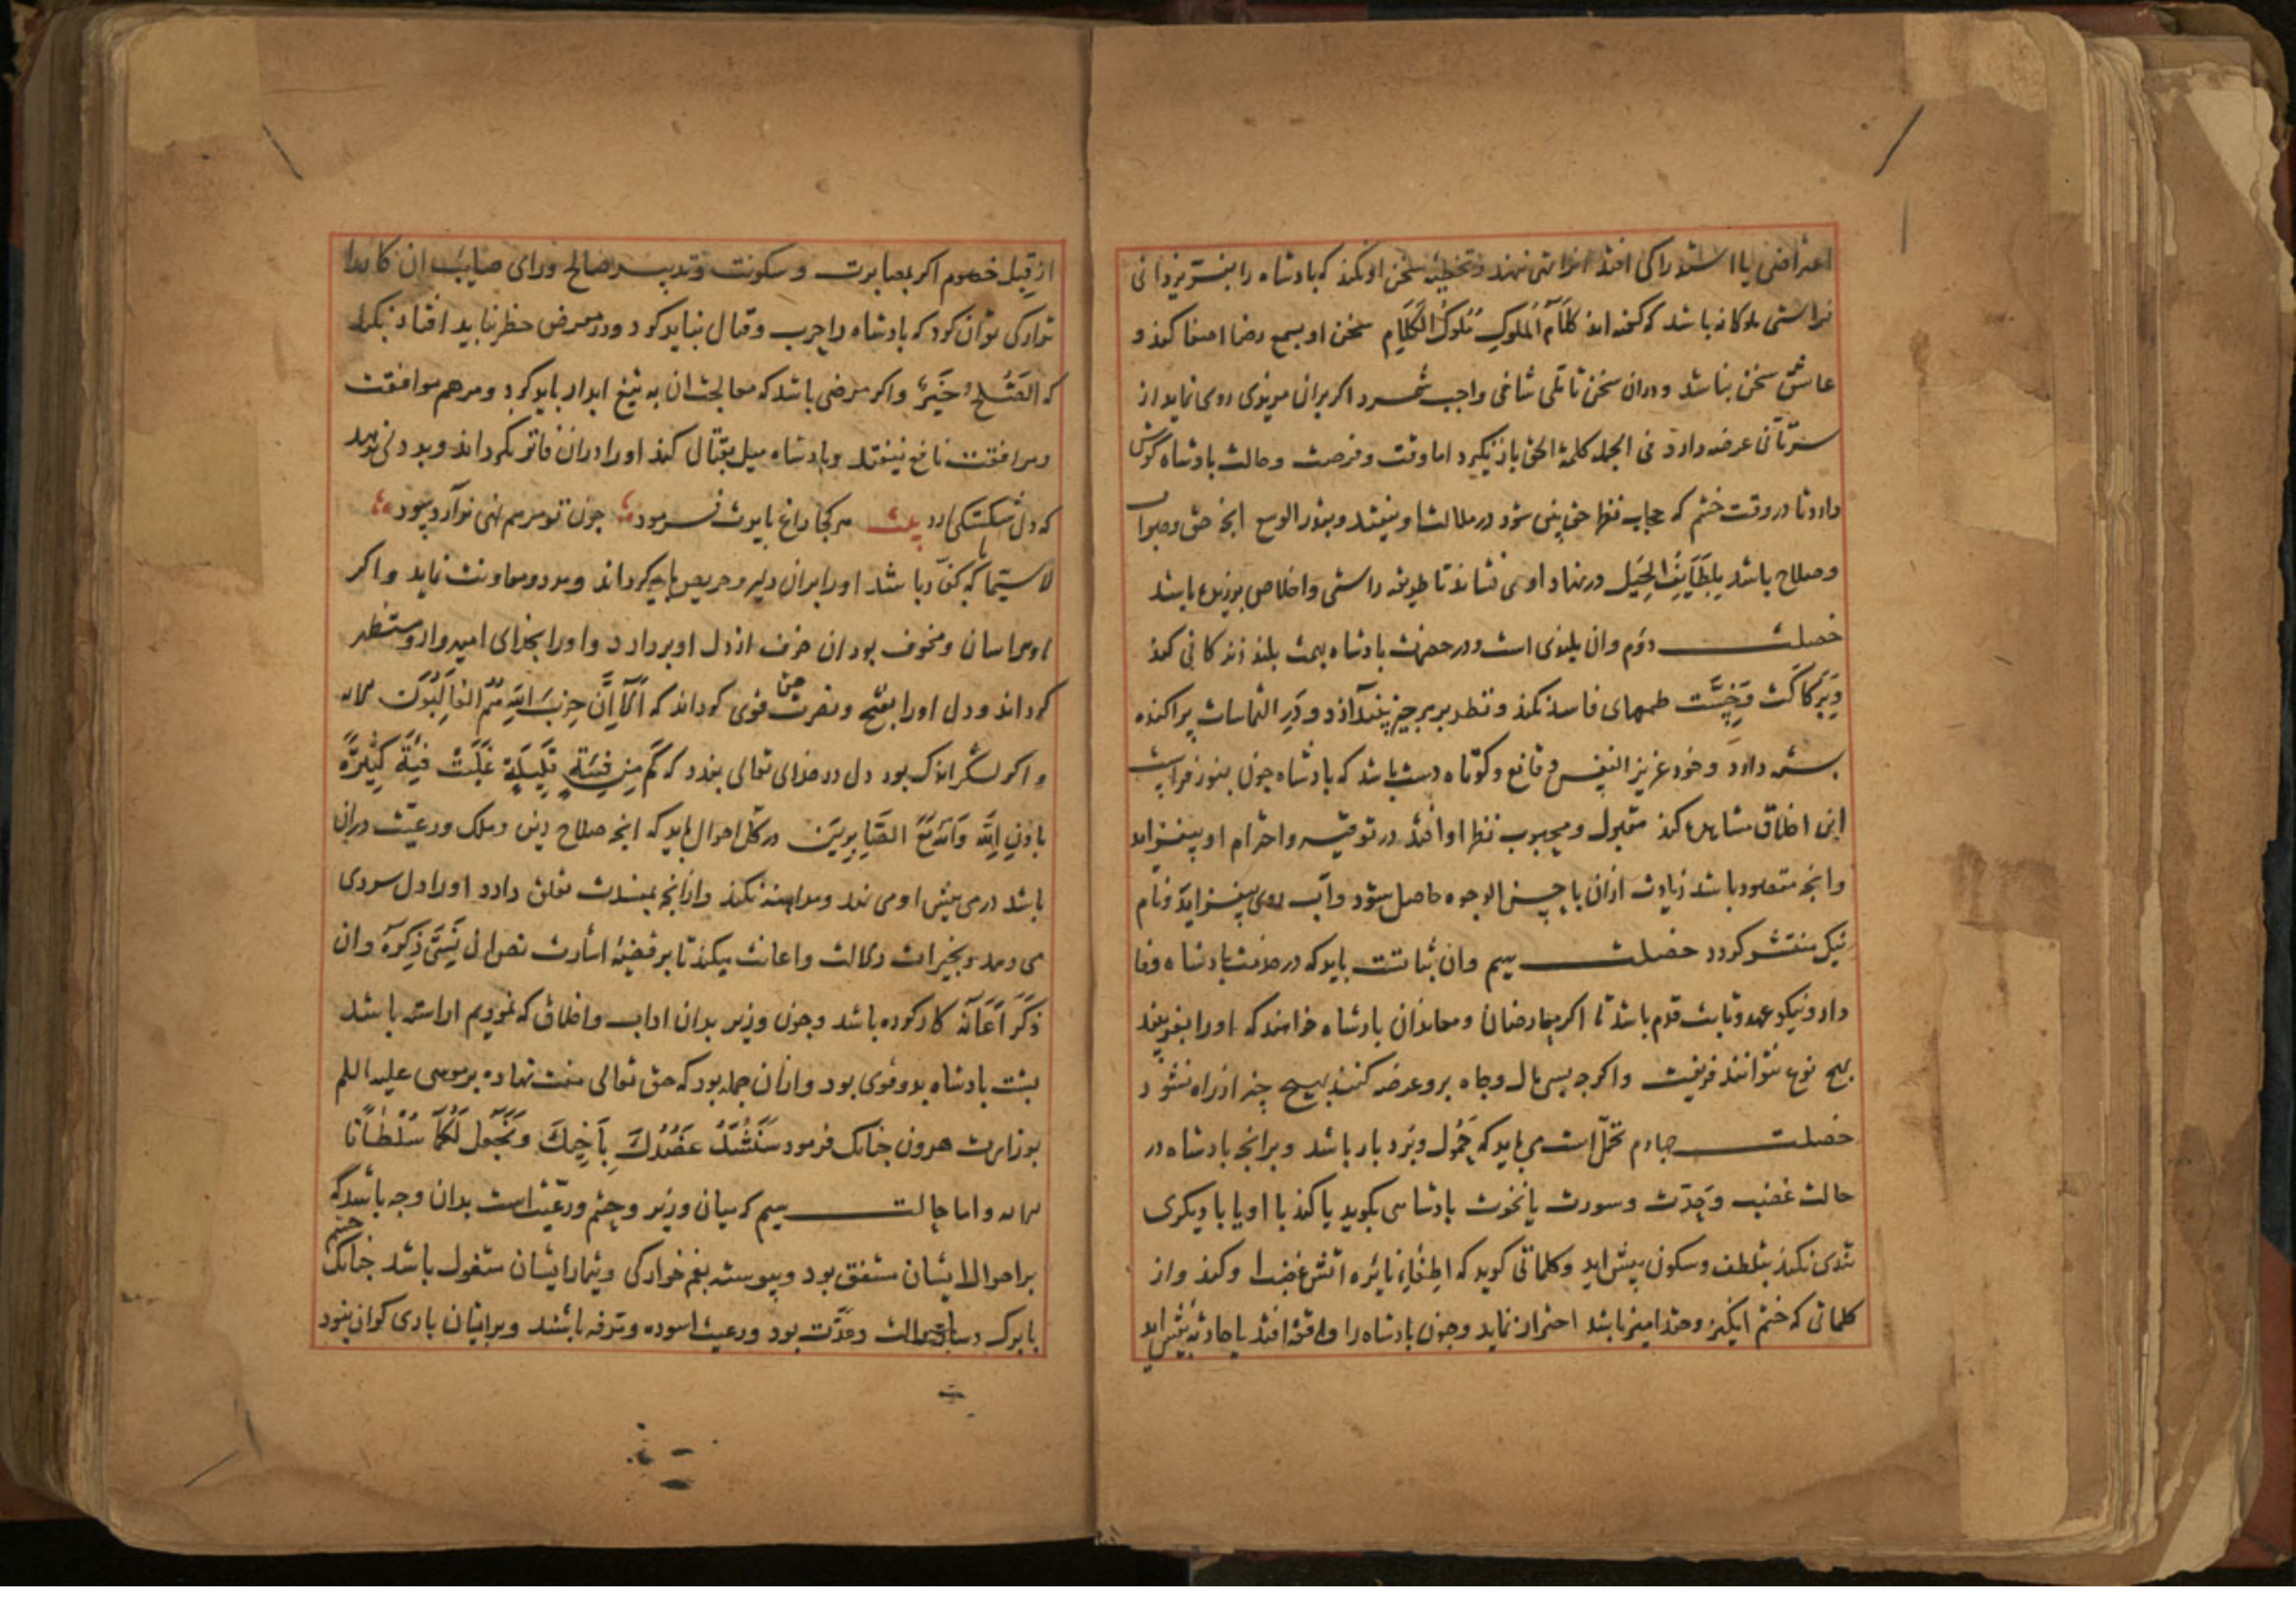 اعتراضی یا استدراکی افتد انرا نهی ننهند و تخطیه سخن او نکند که بادشاه را بنسبت یزدانی
فراستی ملوکانه باشد که گفته اند كَلَامُ الْمُلُوكِ مُلُوكُ الْكَلَامِ سخن او بسمع رضا اصغا کند و
عاشق سخن نباشد و دران سخن تاملی شافی واجب شمرد اگر بران مزیدی روی نماید از
سر تانی عرضه دارد فی الجمله کلمة الحق باز نگیرد اما وقت و فرصت و حالت بادشاه گوش
دارد تا در وقت خشم که حجاب نظر حق بینی شود در ملالت او نیفتد و بقدر الوسع انچه حق و صواب
و صلاح باشد بِلَطَايِفِ الْحِيَل در نهاد او می نشاند تا طریقه راستی و اخلاص ورزیده باشد
خصلت دوم وان بلندی است و در حضرت بادشاه بهمت بلند زندکانی کند
و بركاكت و خست طمعهای فاسد نکند و نظر بر هر چیز نیندازد و در التماسات پراکنده
بسته دارد و خود عزیز النفس و قانع و کوتاه دست باشد که بادشاه چون بنور فراست
این اخلاق مشاهده کند مقبول و محبوب نظر او افتد در توقیر و احترام او بیفزاید
وانچه مقصود باشد زیادت ازان باحسن الوجوه حاصل شود و آب روی بیفزاید و نام
نیک منتشر کردد خصلت سیم وان ثباتست باید که در خدمت بادشاه وفا
دار و نیکو عهد و ثابت قدم باشد تا اکر معارضان و معاندان بادشاه خواهند که اورا بفریبند
بهیچ نوع نتوانند فریفت و اکرچه بسی مال و جاه برو عرضه کنند بهیچ چیز از راه نشود
خصلت چهارم تحمل است می باید که حمول و بردبار باشد و برانچه بادشاه در
حالت غضب و حدت و سورت یا نخوت بادشاهی بکوید یا کند با او یا با دیکری
تندی نکند بتلطف و سکون پیش اید و کلماتی کوید که اطفاء نایره اتش غضب او کند و از
کلماتی که خشم انگیز و حقد امیز باشد احتراز نماید و چون بادشاه را واقعه افتد یا حادثه پیش اید
از قبل خصوم اکر بمصابرت و سکونت و تدبیر صالح و رای صایب ان کار را
تدارکی توان کرد که بادشاه را حرب و قتال نباید کرد و در معرض خطر نباید افتاد بکند
که الصُّلْحُ خَيْرٌ واکر مرضی باشد که معالجت ان به تیغ ابدار باید کرد و مرهم موافقت
و مرافقت نافع نیفتد و بادشاه میل بقتال کند اورا دران فاتر نکرداند و بددلی ندهد
که دل شکستکی ارد بیت هر کجا داغ بایدت فرمود چون تو مرهم نهی نوآرد سود
لاسیما که کفار باشد اورا بران دلیر و حریص باید کرداند و مدد و معاونت نماید و اکر
او هراسان و مخوف بود ان خوف از دل او بردارد و اورا بخدای امیدوار و مستظهر
کرداند و دل اورا بفتح و نصرت حق قوی کرداند که اَلَا اِنَّ حِزْبَ اللهِ هُمُ الْغَالِبُونَ
و اکر لشکر اندک بود دل در خدای تعالی بندد که كَمْ مِن فِئَةٍ قَلِيلَةٍ غَلَبَتْ فِئَةً كَثِيرَةً
بِاِذْنِ اللهِ وَاللهُ مَعَ الصَّابِرِينَ در کل احوال باید که انچه صلاح دین و ملک و رعیت دران
باشد در می پیش او می نهد و مداهنه نکند وازانچه بمفسدت تعلق دارد اورا دل سردی
می دهد و بخیرات دلالت و اعانت میکند تا بر قضیه اشارت نص ان نَسِيَ ذَكَّرَهُ وان
ذَكَرَ اَعَانَهُ کار کرده باشد و چون وزیر بدان اداب و اخلاق که نمودیم اراسته باشد
پشت بادشاه بدو قوی بود وازان جمله بود که حق تعالی منت نهاده بر موسی علیه السلم
بوزارت هرون چنانک فرمود سَنَشُدُّ عَضُدَكَ بِاَخِيكَ وَنَجْعَلُ لَكُمَا سُلْطَانًا
و اما حالت سیم که میان وزیر و حشم و رعیت است بدان وجه باشد که
بر احوال ایشان مشفق بود و پیوسته بغم خوارکی و تیمار ایشان مشغول باشد چنانک حشم
با برک و ساز و الت و عدت بود و رعیت اسوده و مرفه باشند و بر ایشان باری کران نبود